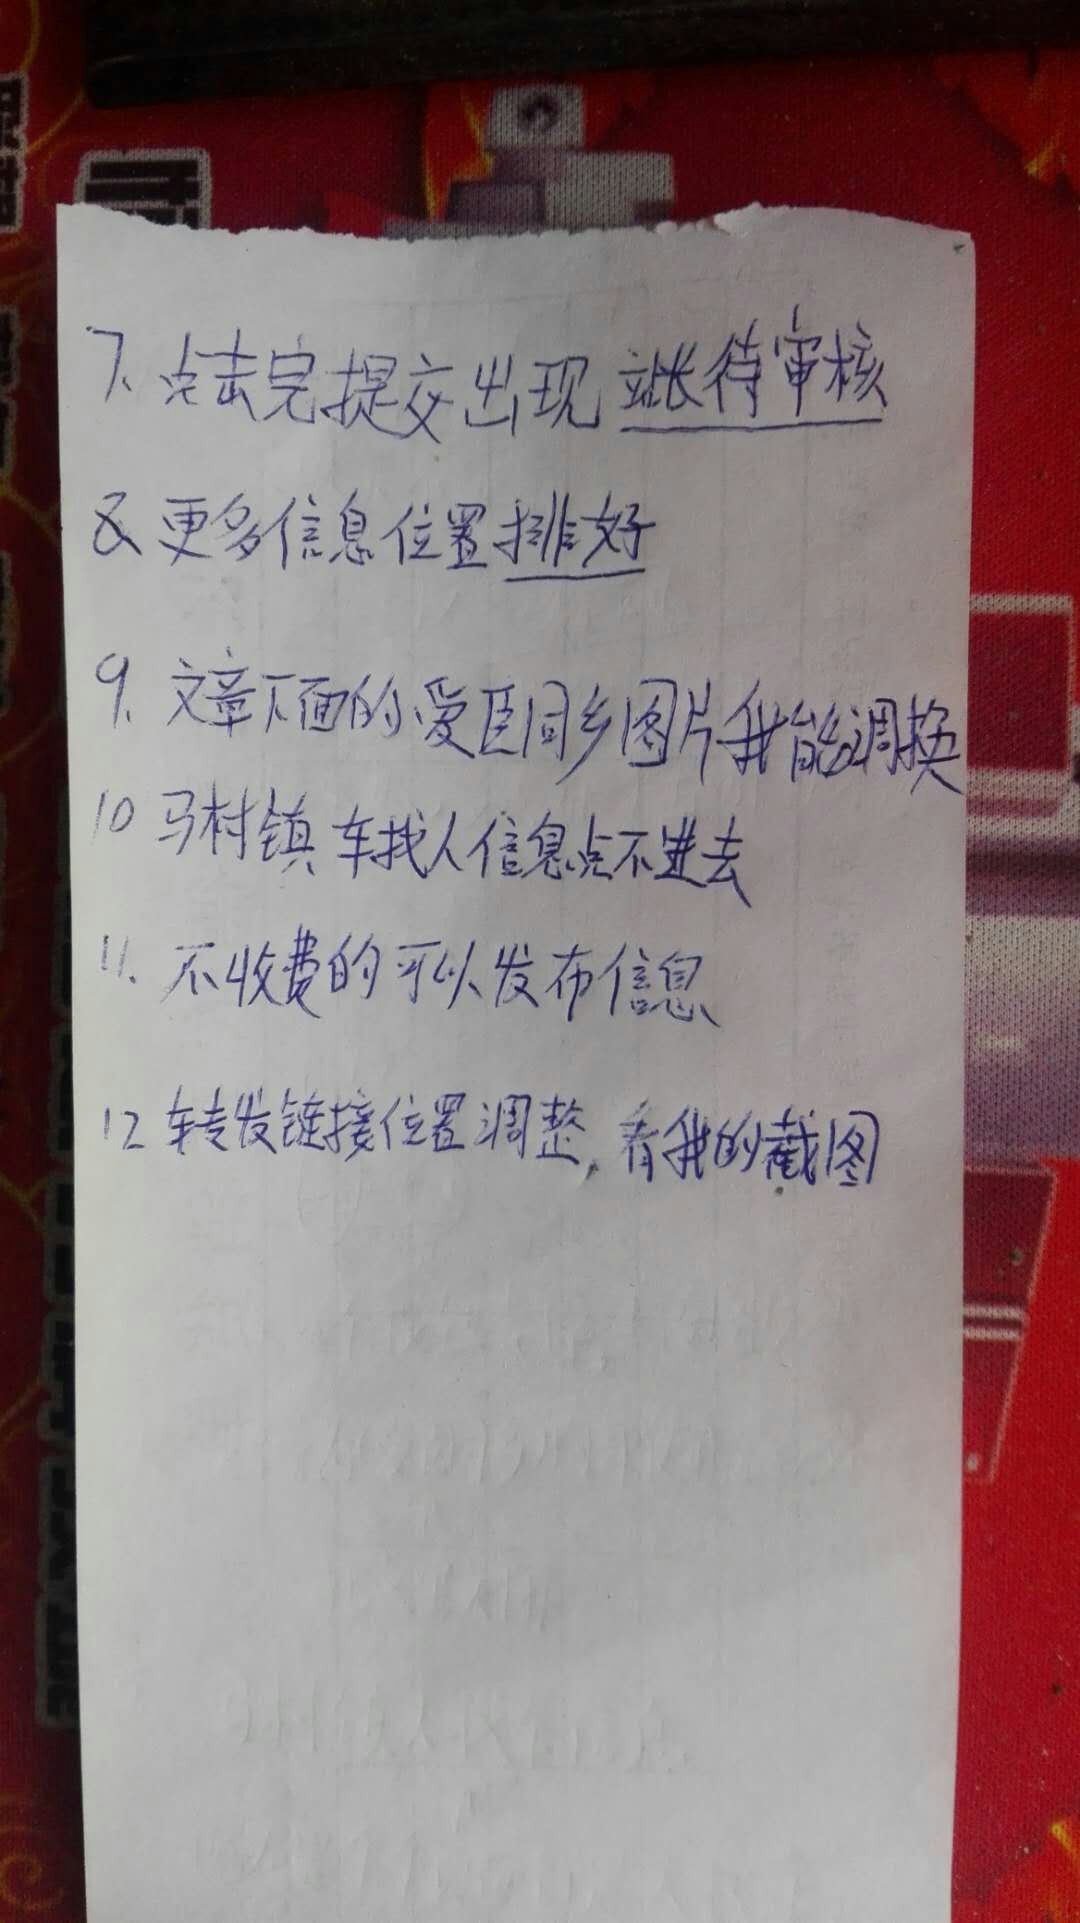 7、点击完提交出现 站长待审核
8、更多信息位置排好
9、文章下面的爱臣同乡图片我能调换
10 马村镇 车找人信息点不进去
11、不收费的可以发布信息
12 转发链接位置调整，看我的截图